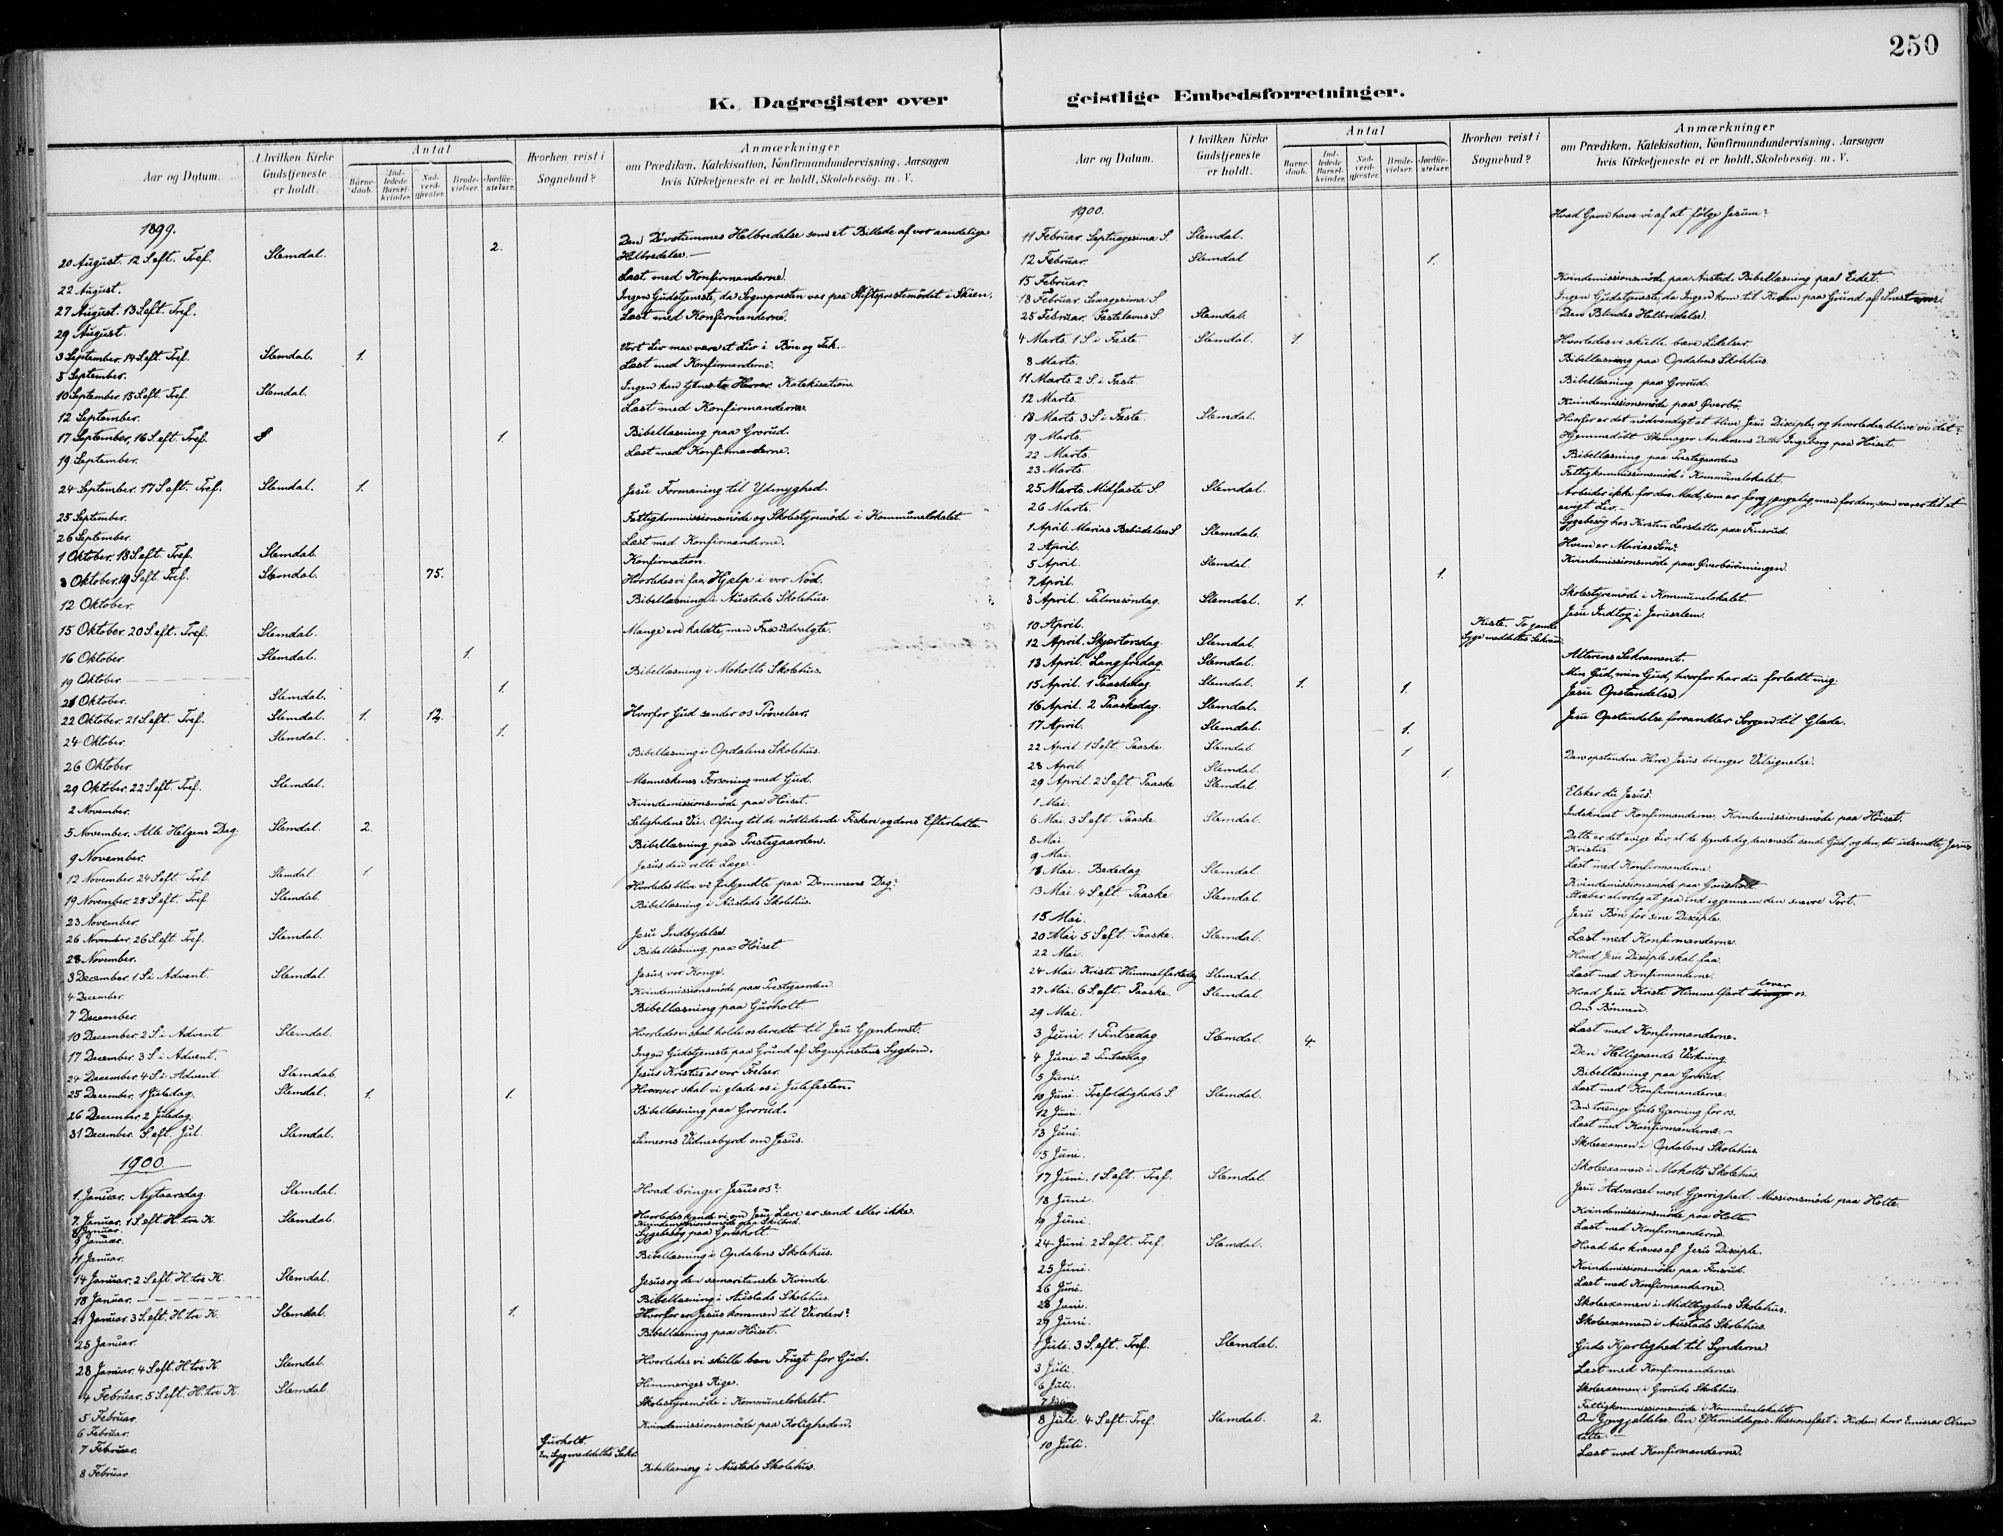 250
K. Dagregister over geistlige Embedsforretninger.
Aar og Datum.
I hvilken Kirke Gudstjeneste er holdt.
Antal
Barne-daab.
Ind-ledede Barsel-kvinder.
Nad-verd-gjester.
Brude-vielser.
Jordfæ-stelser.
Hvorhen reist i Sognebud?
Anmærkninger
om Prædiken, Katekisation, Konfirmandundervisning, Aarsagen
hvis Kirketjeneste ei er holdt, Skolebesög. m. V.
1899.
20 August. 12 S. eft. Tref. Slemdal. 2. Den Døvstummes Helbredelse som et Billede af vor aandelige
Helbredelse.—
22 August. Læst med Konfirmanderne.
27 August. 13 S. eft. Tref. Ingen Gudstjeneste, da Sognepresten var paa Stiftsprestemødet i Skien.
29 August. Læst med Konfirmanderne.
3 September. 14 S. eft. Tref. Slemdal. 1. Vort Liv maa være et Liv i Bøn og Tak.
5 September. Læst med Konfirmanderne.
10 September. 15 S. eft. Tref. Slemdal. Ingen kan tjene to Herrer. Katekisation.
12 September. Læst med Konfirmanderne.
17 September, 16 S. eft. Tref. 1. Bibellæsning paa Grorud.
19 September. Læst med Konfirmanderne.
24 September. 17 S. eft. Tref. Slemdal. 1. Jesu Formaning til Ydmyghed.
25 September. Fattigkommissionsmøde og Skolestyremøde i Kommunelokalet.
26 September. Læst med Konfirmanderne.
1 Oktober. 18 S. eft. Tref. Slemdal. Konfirmation.
8 Oktober. 19 S. eft. Tref. Slemdal. 75. Hvorledes vi faa Hjælp i vor Nød.
12 Oktober. Bibellæsning i Austads Skolehus.
15 Oktober. 20 S. eft. Tref. Slemdal. Mange ere kaldte, men Faa udvalgte.
16 Oktober. Slemdal. 1.
19 Oktober Bibellæsning i Moholts Skolehus.
21 Oktober. Slemdal. 1.
22 Oktober. 21 S. eft. Tref. Slemdal. 1. 12. Hvorfor Gud sender os Prøvelser.
24 Oktober. Slemdal. 1.
26 Oktober. Bibellæsning i Opdalens Skolehus.
29 Oktober. 22 S. eft. Tref. Slemdal. Menneskenes Forsoning med Gud.
2 November. Kvindemissionsmøde paa Høiset.
5 November. Alle Helgens Dag. Slemdal. 2. Salighedens Vei. Ofring til de nødlidende Fiskere og deres Efterladte.
9 November. Bibellæsning paa Prestegaarden.
12 November. 24 S. eft. Tref Slemdal 1. Jesus den rette Læge.
19 November. 25 S. eft. Tref Slemdal. Hvorledes blive vi frikjendte paa Dommens Dag?
23 November. Bibellæsning i Austads Skolehus.
26 November. 26 S. eft. Tref. Slemdal. Jesu Indbydelse
28 November. Bibellæsning paa Høiset.
3 December. 1 S. i Advent. Slemdal. Jesus, vor Konge.
4 December. Kvindemissionsmøde paa Prestegaarden.
7 December. Bibellæsning paa Gurholt.
10 December. 2 S. i Advent Slemdal. Hvorledes vi skal holde os beredte til Jesu Gjenkomst.
17 December. 3 S. i Advent. Ingen Gudstjeneste paa Grund af Sognepresten​s Sygdom.
24 December. 4 S. i Advent. Slemdal. Jesus Kristus er vor Frelser.
25 December. 1 Juledag. Slemdal. 1. 1. Hvorover skal vi glade os i Julefesten.
26 December. 2 Juledag. Bibellæsning paa Grorud.
31 December. S. eft. Jul. Slemdal. Simeons Vidnesbyrd om Jesus.
1900.
1. Januar. Nytaarsdag. Slemdal. Hvad bringer Jesus os?
7. Januar. 1 S. eft. H. tre K. Slemdal. Hvorledes kjende vi, om Jesu Lære er sand eller ikke.
8 Januar. Kvindemissionsmøde paa
9 Januar. Sygebesøg paa Gonsholt.
11 Januar. Bibellæsning i Opdalens Skolehus.
14 Januar. 2 S. eft. H. tre K. Slemdal. Jesus og den samaritanske Kvinde.
18 Januar. Bibellæsning i Austads Skolehus.
21 Januar. 3 S. eft. H. tre K. Slemdal. 1. Hvorfor er Jesus kommen til Verden?
25 Januar. Bibellæsning paa Høiset.
28 Januar. 4 S. eft. H. tre K. Slemdal. Hvorledes vi skulle bære Frugt for Gud.
4 Februar. 5 S. eft. H. tre K. Slemdal. Himmeriges Rige.
5 Februar. Skolestyremøde i Kommunelokalet.
6 Februar. Kvindemissionsmøde paa Roligheden.
7 Februar. Gurholt. En Syg meddeltes Sakr.
8 Februar. Bibellæsning i Austads Skolehus.
Aar og Datum.
I hvilken Kirke Gudstjeneste er holdt.
Antal
Barne-daab.
Ind-ledede Barsel-kvinder.
Nad-verd-gjester.
Brude-vielser.
Jordfæ-stelser.
Hvorhen reist i Sognebud?
Anmærkninger
om Prædiken, Katekisation, Konfirmandundervisning, Aarsagen
hvis Kirketjeneste ei er holdt. Skolebesög. m. V.
1900.
11 Februar. Septuagesima S. Slemdal. Hvad Gavn have vi af at følge Jesum?
12 Februar. Slemdal 1.
15 Februar. Kvindemissionsmøde paa Austad. Bibellæsning paa Eidet.
18 Februar. Sexagesima S. Ingen Gudstjeneste, da Ingen kom til Kirken paa Grund af
25 Februar. Fastelavns S. Slemdal. Den Blindes Helbredelse.
4 Marts. 1 S. i Faste Slemdal. 1. Hvorledes vi skulle bære Lidelser.
8 Marts. Bibellæsning paa Opdalens Skolehus.
11 Marts 2 S. i Faste. Bibellæsning paa Grorud.
12 Marts. Kvindemissionsmøde paa Øverbø.
18 Marts. 3 S. i Faste. Slemdal. Hvorfor er det nødvendigt at blive Jesu Disciple, og hvorledes blive vi det?
19 Marts. Hjemmedøbt Skomager Andersens Datter Ingeborg paa Høiset.
22 Marts. Bibellæsning paa Prestegaarden
23 Marts. Fattigkommissionsmøde i Kommunelokalet.
25 Marts. Midfaste S. Slemdal. Arbeider ikke for den Mad, som er forgjængelig, men for den, som varer til et
evigt Liv.—
26 Marts. Sygebesøg hos Kirsten Larsdatter paa Finsrud.
1 April. Marias Bebudelses S. Slemdal. Hvem er Marias Søn?
2 April. Kvindemissionsmøde paa Øverbørønningen.
5 April. Slemdal
7 April. 1. Skolestyremøde i Kommunelokalet.
8 April. Palmesøndag. Slemdal. 1. Jesu Indtog i Jerusalem.
10 April. Kiste. To gamle Syge meddeltes Sakram.
12 April. Skjærtorsdag Slemdal. Alterens Sakrament.
13 April. Langfredag. Slemdal. Min Gud, min Gud, hvorfor har du forladt mig.
15 April. 1 Paaskedag Slemdal. 1. 1. Jesu Opstandelse.
16 April. 2 Paaskedag. Slemdal. Jesu Opstandelse forvandler Sorgen til Glæde.
17 April. Slemdal. 1.
22 April 1 S. eft. Paaske. Slemdal. 1 Den opstandne Herre Jesus bringer Velsignelse.
28 April. Slemdal. 1.
29 April. 2 S. eft. Paaske Slemdal. Elsker du Jesus?
1 Mai. Indskrevet Konfirmanderne. Kvindemissionsmøde paa Høiset.
6 Mai. 3 S. eft. Paaske. Slemdal. Dette er det evige Liv, at de kjende dig den eneste sande Gud, og den, du udsendte, Jesus
Kristus.
8 Mai. Læst med Konfirmanderne
9 Mai. Kvindemissionsmøde paa Gonsholt
Mai. Bededag Slemdal Stræber alvorlig at gaa ind igjennem den snevre Port.
13 Mai. 4 S. eft. Paaske Slemdal. Jesu Bøn for sine Disciple.
15 Mai. Læst med Konfirmanderne.
20 Mai 5 S. eft. Paaske. Slemdal. Hvad Jesu Disciple skal faa.
22 Mai. Læst med Konfirmanderne.
24 Mai Kristi Himmelfartsdag Slemdal. Hvad Jesu Kristi Himmelfart lover os.
27 Mai. 6 S. eft. Paaske. Slemdal. Om Bønnen.
29 Mai. Læst med Konfirmanderne.
3 Juni 1 Pintsedag Slemdal. 4. Den Helligaands Virkning
4 Juni. 2 Pintsedag Bibellæsning paa Grorud.
5 Juni. Læst med Konfirmanderne.
10 Juni. Trefoldigheds S. Slemdal. Den treenige Guds Gjerning for os.
12 Juni. Læst med Konfirmanderne.—
13 Juni. Skoleexamen i Opdalens Skolehus.
15 Juni. Skoleexamen i Moholts Skolehus.
17 Juni. 1 S. eft. Tref. Slemdal. Jesu Advarsel mod Gjerrighed. Missionsmøde paa Holte.
18 Juni. Kvindemissionsmøde paa Holte.
19 Juni. Læst med Konfirmanderne.
24 Juni 2 S. eft. Tref. Slemdal. Hvad der kræves af Jesu Disciple.
25 Juni. Kvindemissionsmøde paa Finsrud.
26 Juni. Læst med Konfirmanderne.
28 Juni. Skoleexamen i Midtbygdens Skolehus.
29 Juni. Skoleexamen i Austads Skolehus.
1 Juli. 3 S. eft. Tref. Slemdal. Guds Kjærlighed til Synderne.
3 Juli. Læst med Konfirmanderne.
6 Juli. Skoleexamen i Groruds Skolehus.
7 Juli Fattigkommissionsmøde i Kommunelokalet
8 Juli. 4 S. eft. Tref. Slemdal. 2. Om Gjengjældelse. Om Eftermiddagen Missionsfest i Kirken, hvor Emissær Olsen
talte.—
10 Juli. Læst med Konfirmanderne.